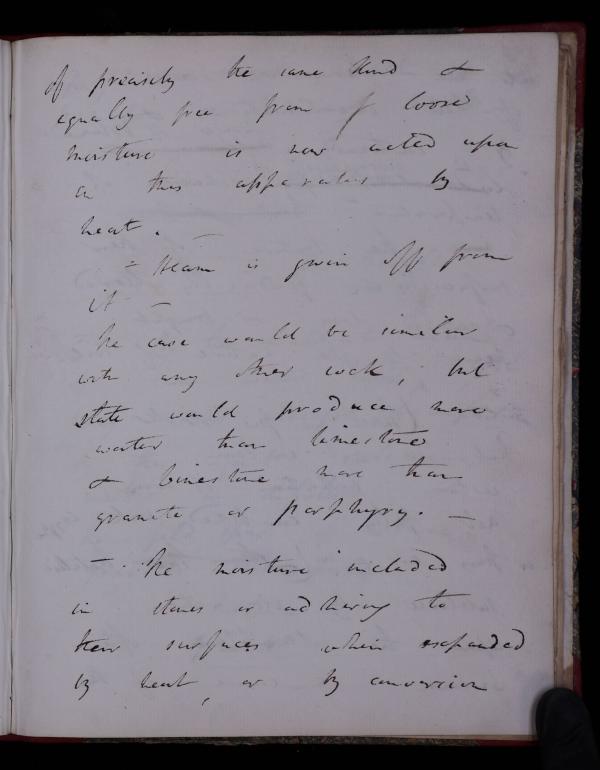 of precisely the same kind &
equally free from loose
moisture is now acted upon
in this apparatus by
heat. —
– steam is given off from
it —
The case would be similar
with any other rock, but
slate would produce more
water than limestone
& limestone more than
granite or porphyry. —
— The moisture included
in stones or adhering to
their surfaces when expanded
by heat, or by conversion